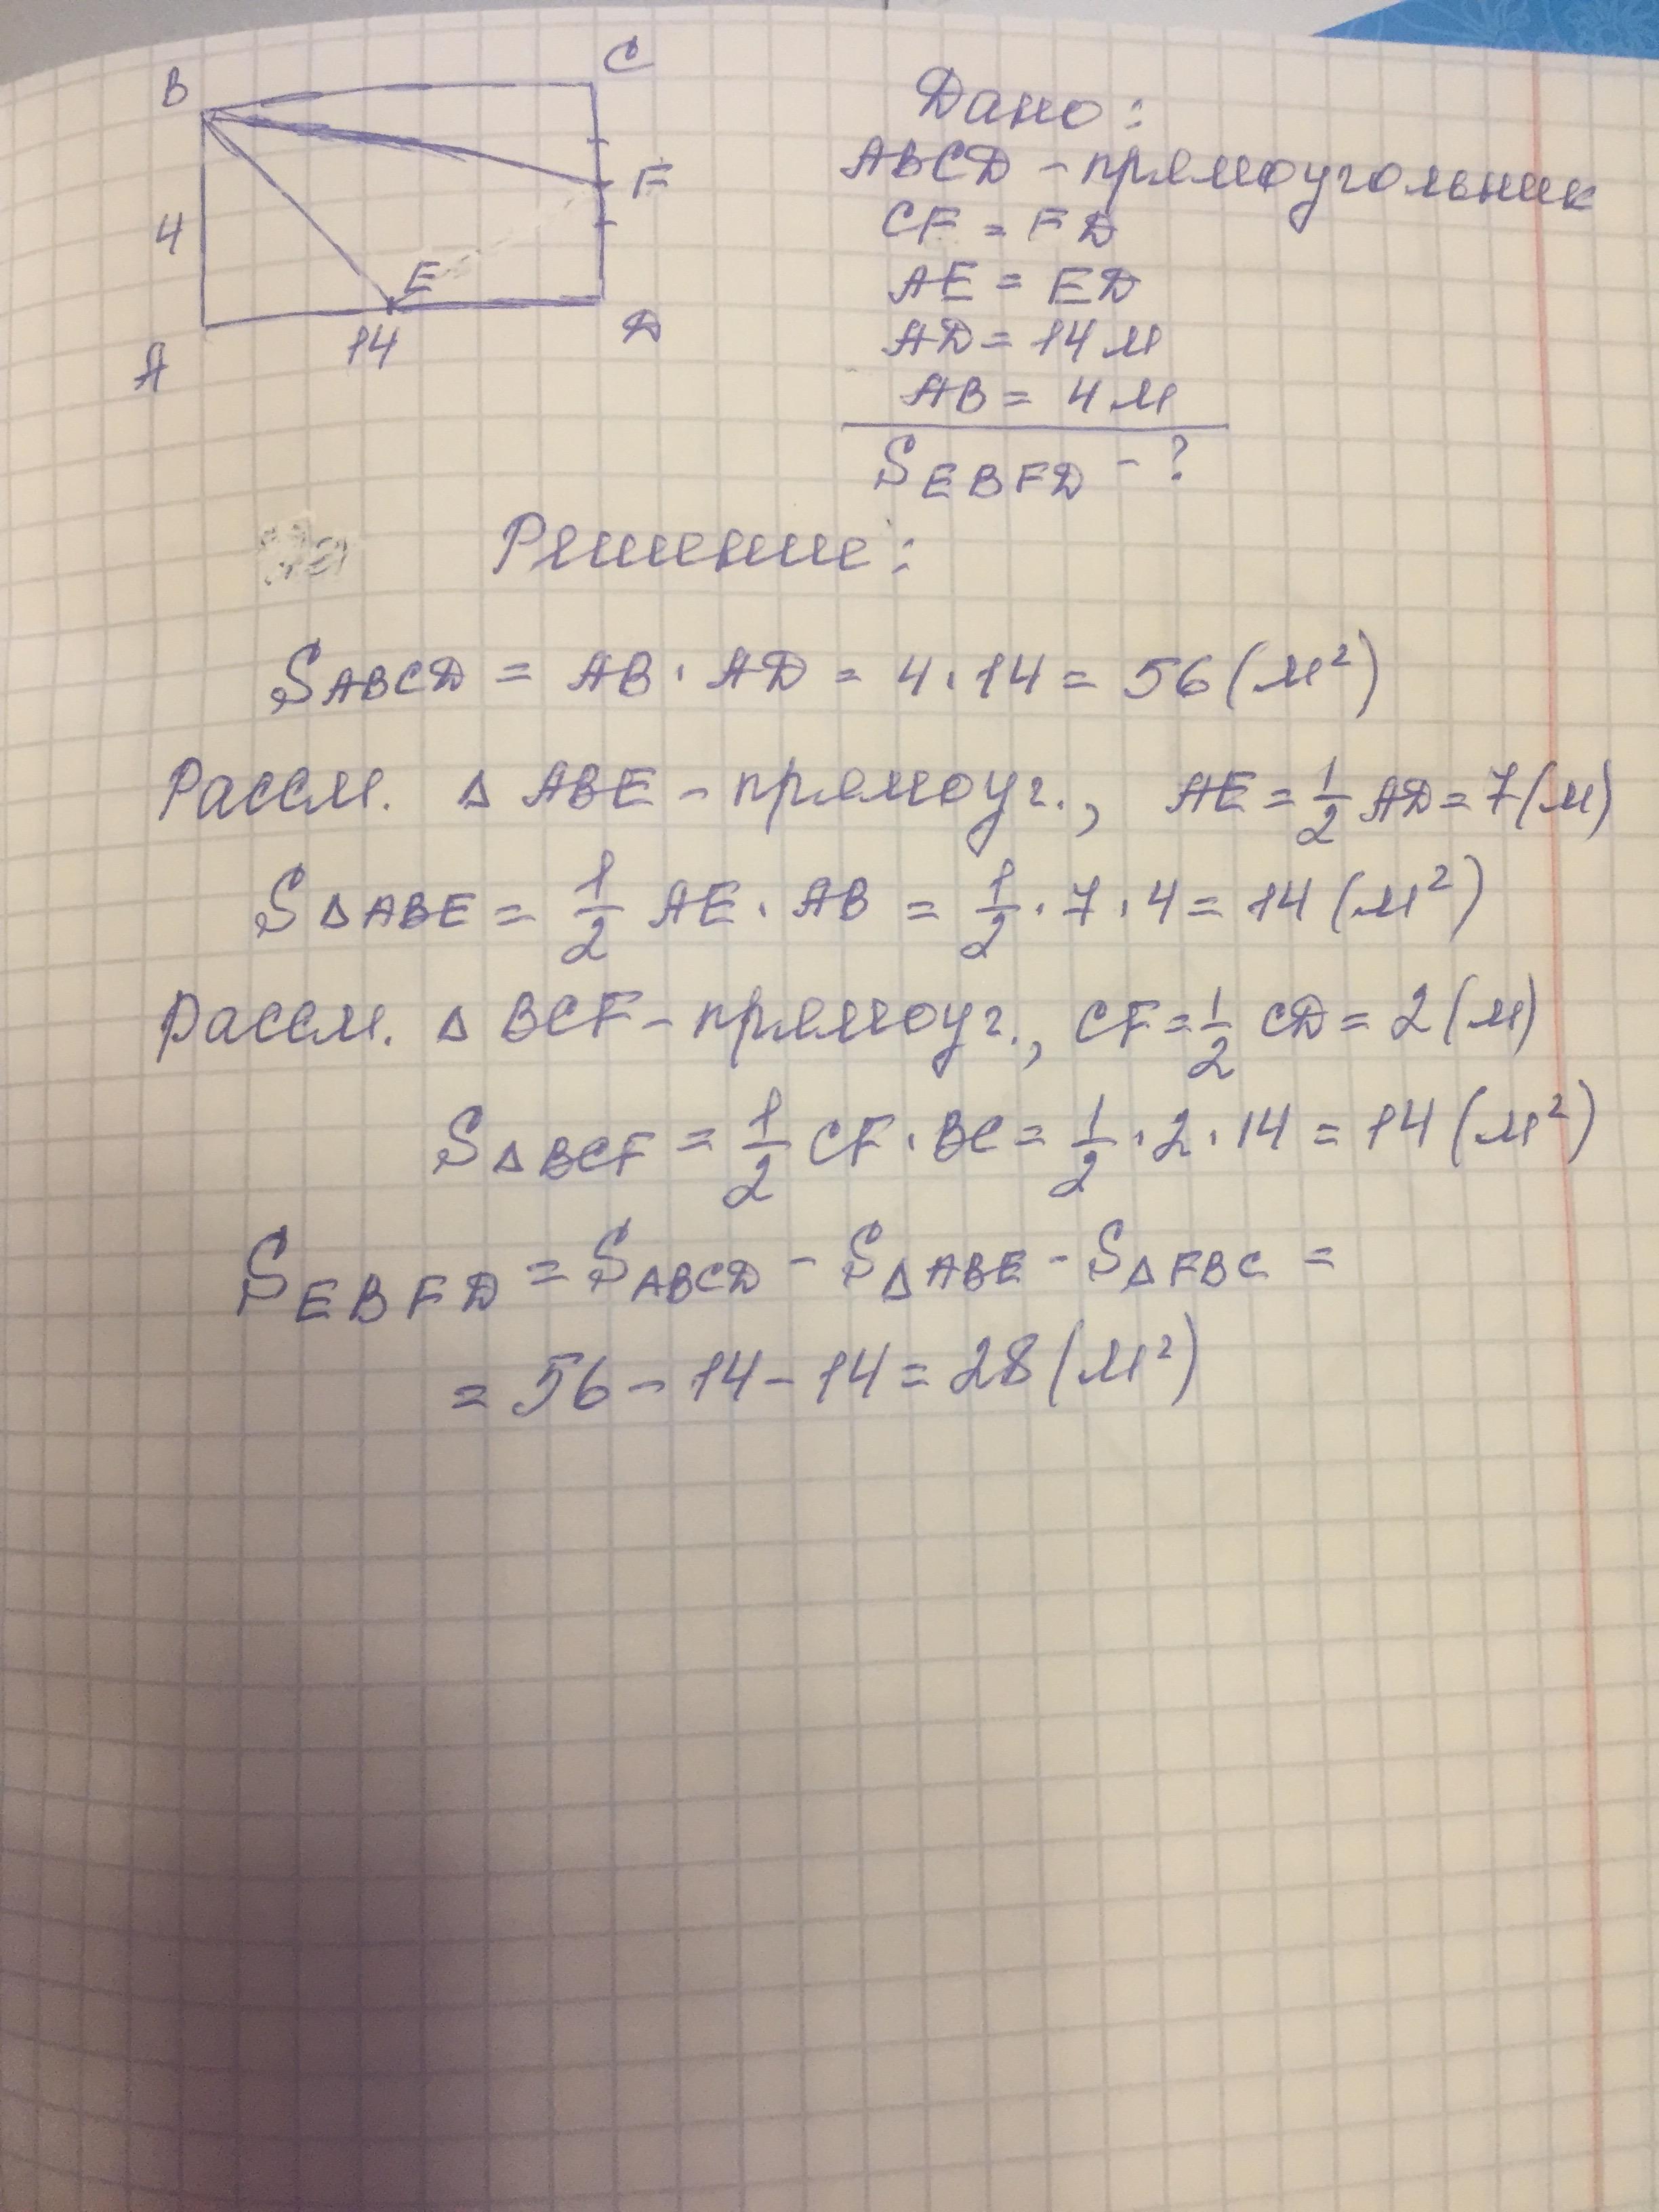 B
C
F
4
E
14
A
D
Дано:
ABCD - прямоугольник
CF = FD
AE = ED
AD = 14 м
AB = 4 м
S EBFD - ?
Решение:
S ABCD = AB · AD = 4 · 14 = 56 (м²)
Рассм. Δ ABE - прямоуг., AE = 1/2 AD = 7 (м)
S Δ ABE = 1/2 AE · AB = 1/2 · 7 · 4 = 14 (м²)
Рассм. Δ BCF - прямоуг., CF = 1/2 CD = 2 (м)
S Δ BCF = 1/2 CF · BC = 1/2 · 2 · 14 = 14 (м²)
S EBFD = S ABCD - S Δ ABE - S Δ FBC =
= 56 - 14 - 14 = 28 (м²)